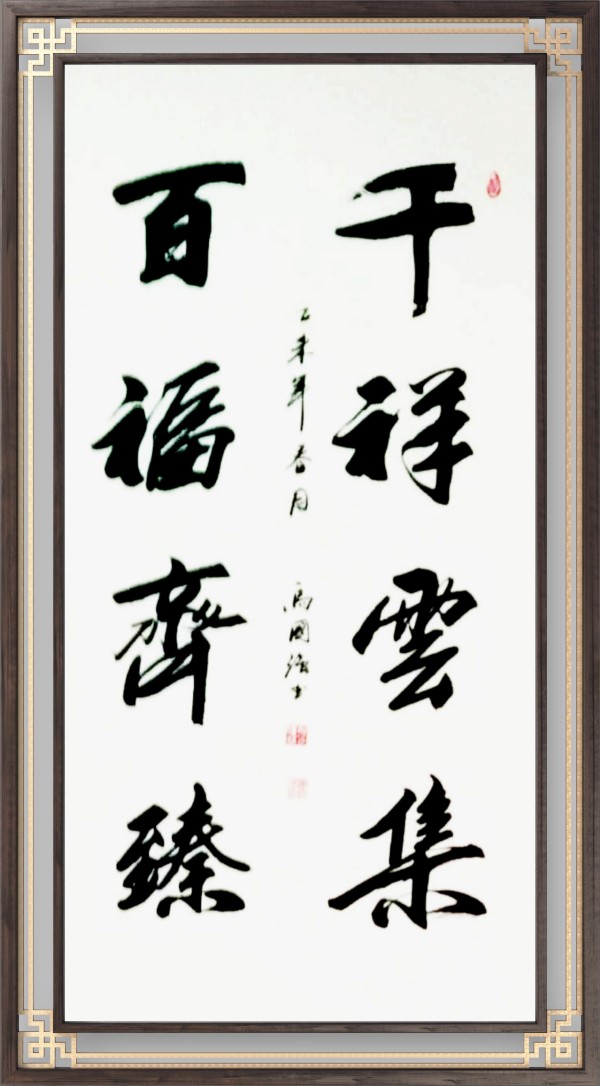 千祥雲集
百福齊臻
乙未年春月
馬國強書